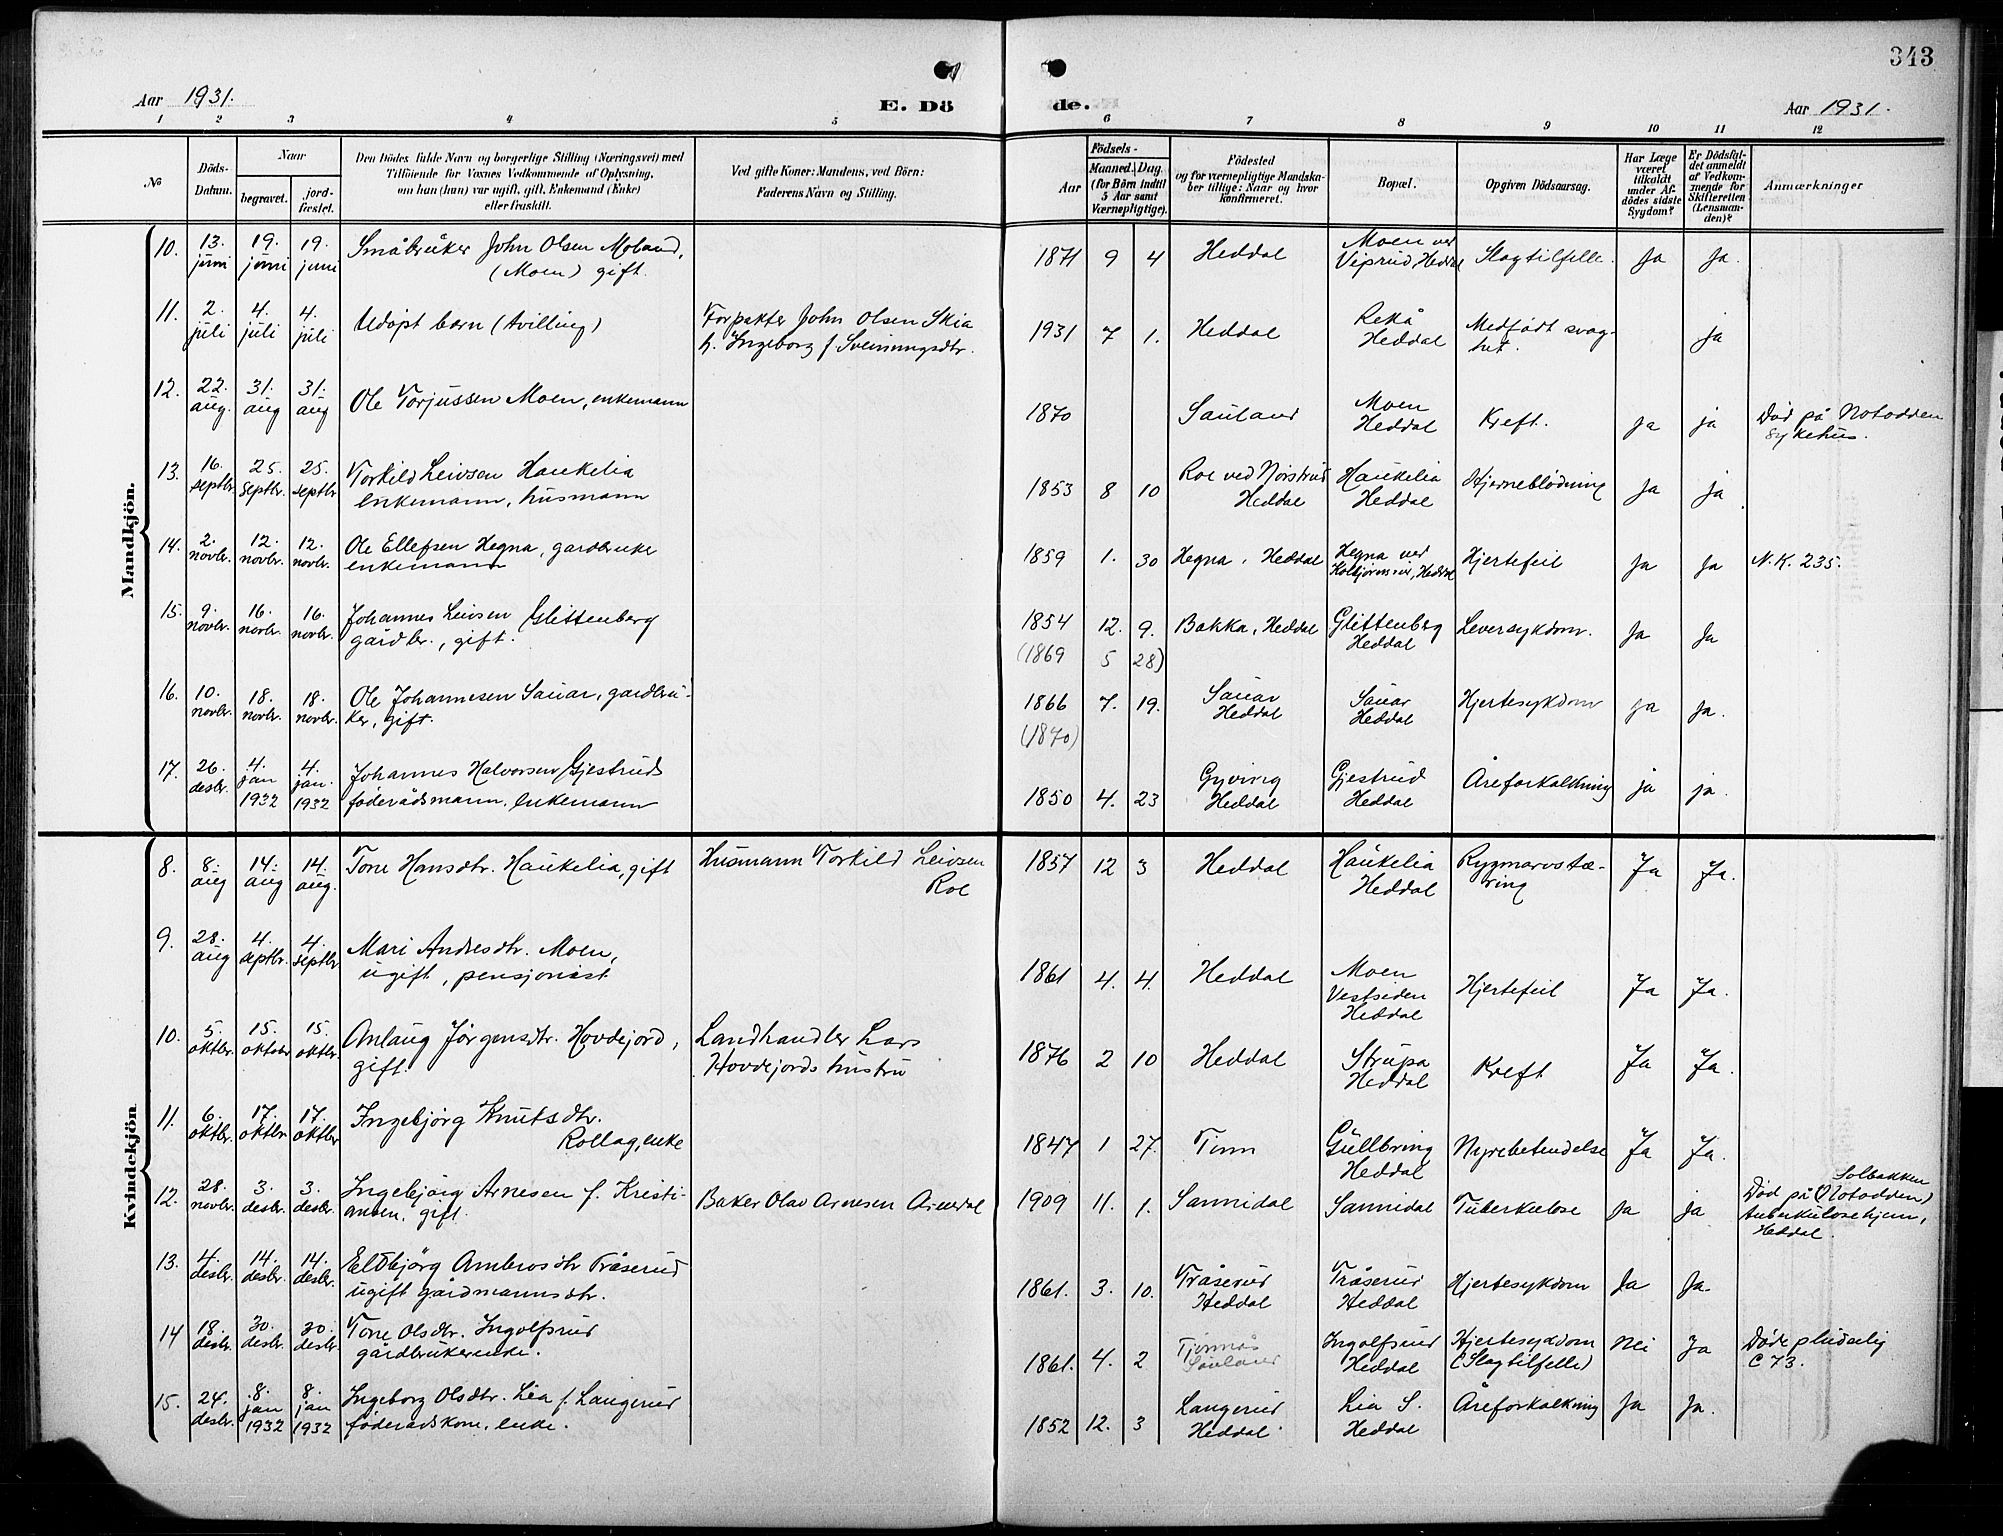 343
Aar 1931.
E. Dö
de.
Aar 1931.
1 2 3 4 5 6 7 8 9 10 11 12
No
Döds-
Datum.
Naar
begravet.
jord-
fæstet.
Den Dödes fulde Navn og borgerlige Stilling (Næringsvei) med
Tilföiende for Voxnes Vedkommende af Oplysning,
om han (hun) var ugift, gift, Enkemand (Enke)
eller fraskilt.
Ved gifte Koner: Mandens, ved Börn:
Faderens Navn og Stilling.
Födsels-
Aar
Maaned. Dag.
(for Börn indtil
5 Aar samt
Værnepligtige).
Födested
og for værnepligtige Mandska-
ber tillige: Naar og hvor
konfirmeret.
Bopæl.
Opgiven Dödsaarsag.
Har Læge
været
tilkaldt
under Af-
dödes sidste
Sygdom?
Er Dödsfal-
det anmeldt
af Vedkom-
mende for
Skifteretten
(Lensman-
den)?
Anmærkninger
Mandkjön.
10. 13. juni 19. juni 19. juni Småbruker John Olsen Moland, (Moen) gift. 1871 9 4 Heddal Moen ved Viprud, Heddal Slagtilfelle. Ja Ja.
11. 2. juli 4. juli 4. juli Udøpt barn (tvilling) Forpakter John Olsen Skia h. Ingeborg f Sveinungsdtr. 1931 7 1. Heddal Rekå Heddal Medfødt svaghet. ja
12. 22. aug. 31. aug 31. aug Ole Torjussen Moen, enkemann 1870 Sauland Moen Heddal Kreft. ja ja Død på Notodden sykehus.
13. 16. septbr. 25. septbr. 25. septbr Torkild Leivsen Haukelia enkemann, husmann 1853 8 10 Roe ved Nørstrud Heddal Haukelia Heddal Hjerneblödning ja ja
14. 2. novbr. 12. novbr. 12. novbr. Ole Ellefsen Hegna, gardbruke enkemann 1859 1. 30 Hegna, Heddal Hegna ved Kolbjørnsrud, Heddal Hjertefeil Ja Ja N.K. 235.
15. 9. novbr. 16. novbr. 16. novbr. Johannes Leivsen Glittenberg gårdbr., gift. 1854 12. 9. (1869 5 28) Bakka, Heddal Glittenberg Heddal Leversykdom. Ja Ja
16. 10. novbr. 18. novbr. 18. novbr. Ole Johannesen Sauar, gardbruker, gift. 1866 7. 19. (1870) Sauar Heddal Sauar Heddal Hjertesykdom ja ja.
17. 26. desbr. 4. jan 1932 4. jan. 1932 Johannes Halvorsen Gjestrud føderådsmann, enkemann 1850 4. 23 Gyvirg Heddal Gjestrud Heddal Åreforkalkning ja ja.
Kvindekjön
8. 8. aug 14. aug 14. aug. Tone Hansdtr. Haukelia, gift Husmann Torkild Leivsen Roe 1857 12 3 Heddal Haukelia Heddal Rygmarvstæring Ja Ja.
9. 28. aug 4. septbr. 4. septbr Mari Andresdtr. Moen, ugift, pensjonist 1861 4. 4. Heddal Moen Vestsiden Heddal Hjertefeil Ja Ja.
10. 5. oktbr. 15. oktobr 15. oktbr. Anlaug Jørgensdtr. Hovdejord, gift. Landhandler Lars Hovdejords hustru 1876 2 10 Heddal Strupa Heddal Kreft Ja Ja.
11. 6. oktbr. 17. oktbr. 17. oktbr Ingebjörg Knutsdtr. Rollag, enke 1847 1 27. Tinn Gullbring Heddal Nyrebetendelse Ja Ja.
12. 28. novbr. 3. desbr. 3. desbr. Ingebjörg Arnesen f. Kristiansen, gift. Baker Olav Arnesen Årnedal 1909 11. 1. Sannidal Sannidal Tuberkulose Ja ja Solbakken Død på (Notodden) tuberkulosehjem, Heddal.
13. 4. desbr. 14. desbr. 14. desbr. Eldbjörg Ambrosdtr Tråserud ugift gårdmannsdtr. 1861. 3. 10. Tråserud Heddal Tråserud Heddal Hjertesykdom Ja Ja.
14 18. desbr. 30. desbr. 30. desbr. Tone Olsdtr. Ingolfsrud gårdbrukerenke. 1861. 4. 2 Tjønnås Sauland Ingolfsrud Heddal Hjertesykdom (Slagtilfelle) Nei Ja Døde pludselig C 73.
15. 24. desbr. 8. jan 1932 8. jan 1932 Ingeborg Olsdtr. Lia f. Langerud føderådskone, enke. 1852 12. 3 Langerud Heddal. Lia S. Heddal Åreforkalkning Ja Ja.